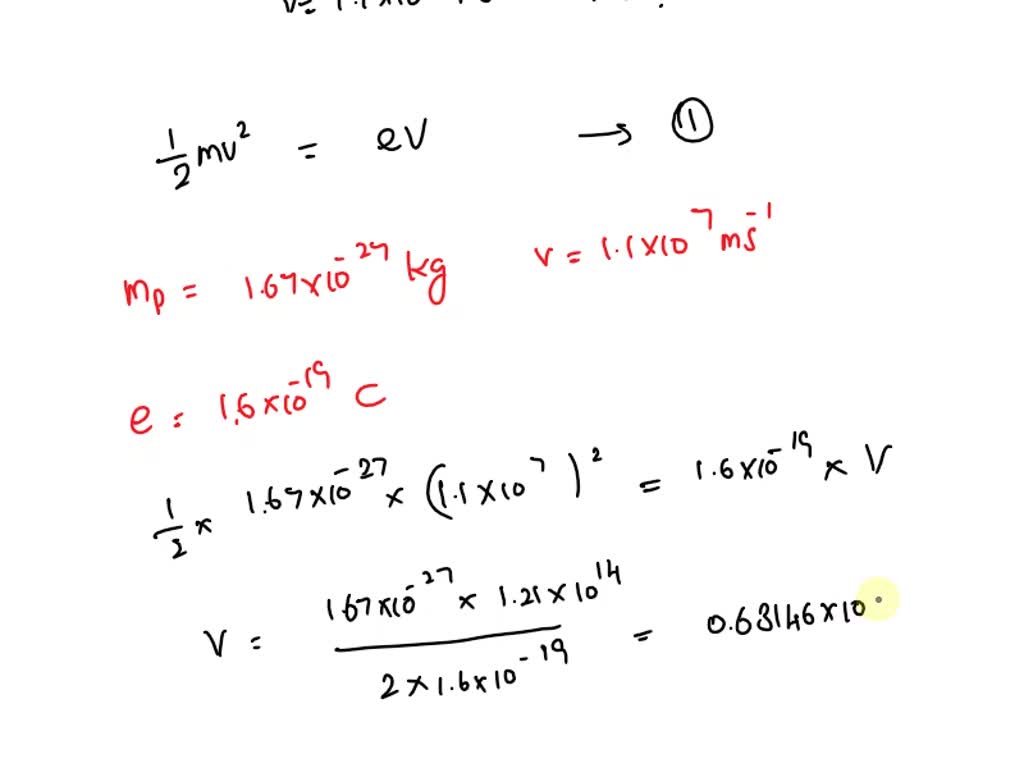 ½mv² = eV → ①
mp = 1.67×10⁻²⁷ kg v = 1.1×10⁷ ms⁻¹
e = 1.6×10⁻¹⁹ C
½ × 1.67×10⁻²⁷ × (1.1×10⁷)² = 1.6×10⁻¹⁹ × V
V = 167×10⁻²⁷ × 1.21×10¹⁴ / 2×1.6×10⁻¹⁹ = 0.63146×10